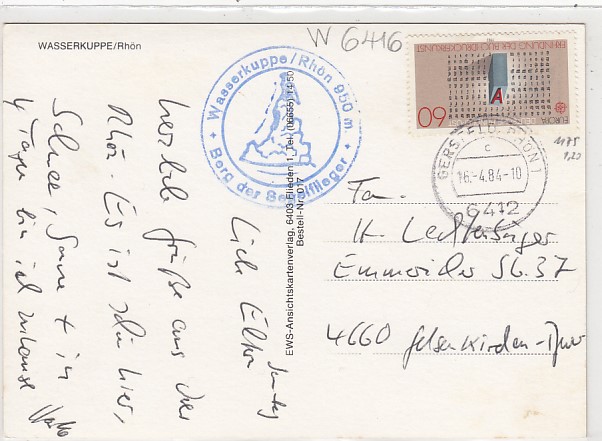 WASSERKUPPE/Rhön
W 6416
Wasserkuppe/Rhön 950 m.
Berg der Segelflieger
ERFINDUNG DER BUCHDRUCKERKUNST
A
60
EUROPA
1175
1,20
GERSFELD, RHÖN 1
c
16.-4.84-10
6412
EWS-Ansichtskartenverlag, 6403 Flieden 1, Tel. (06655) 14 50
Bestell-Nr. 017
Liebe Eltern
herzliche Grüße aus der
Rhön. Es ist schön hier,
Schnee, Sonne + in
4 Tagen bin ich zuhause
Fam.
H.
Emmericher Str. 37
4660 Gelsenkirchen-Buer